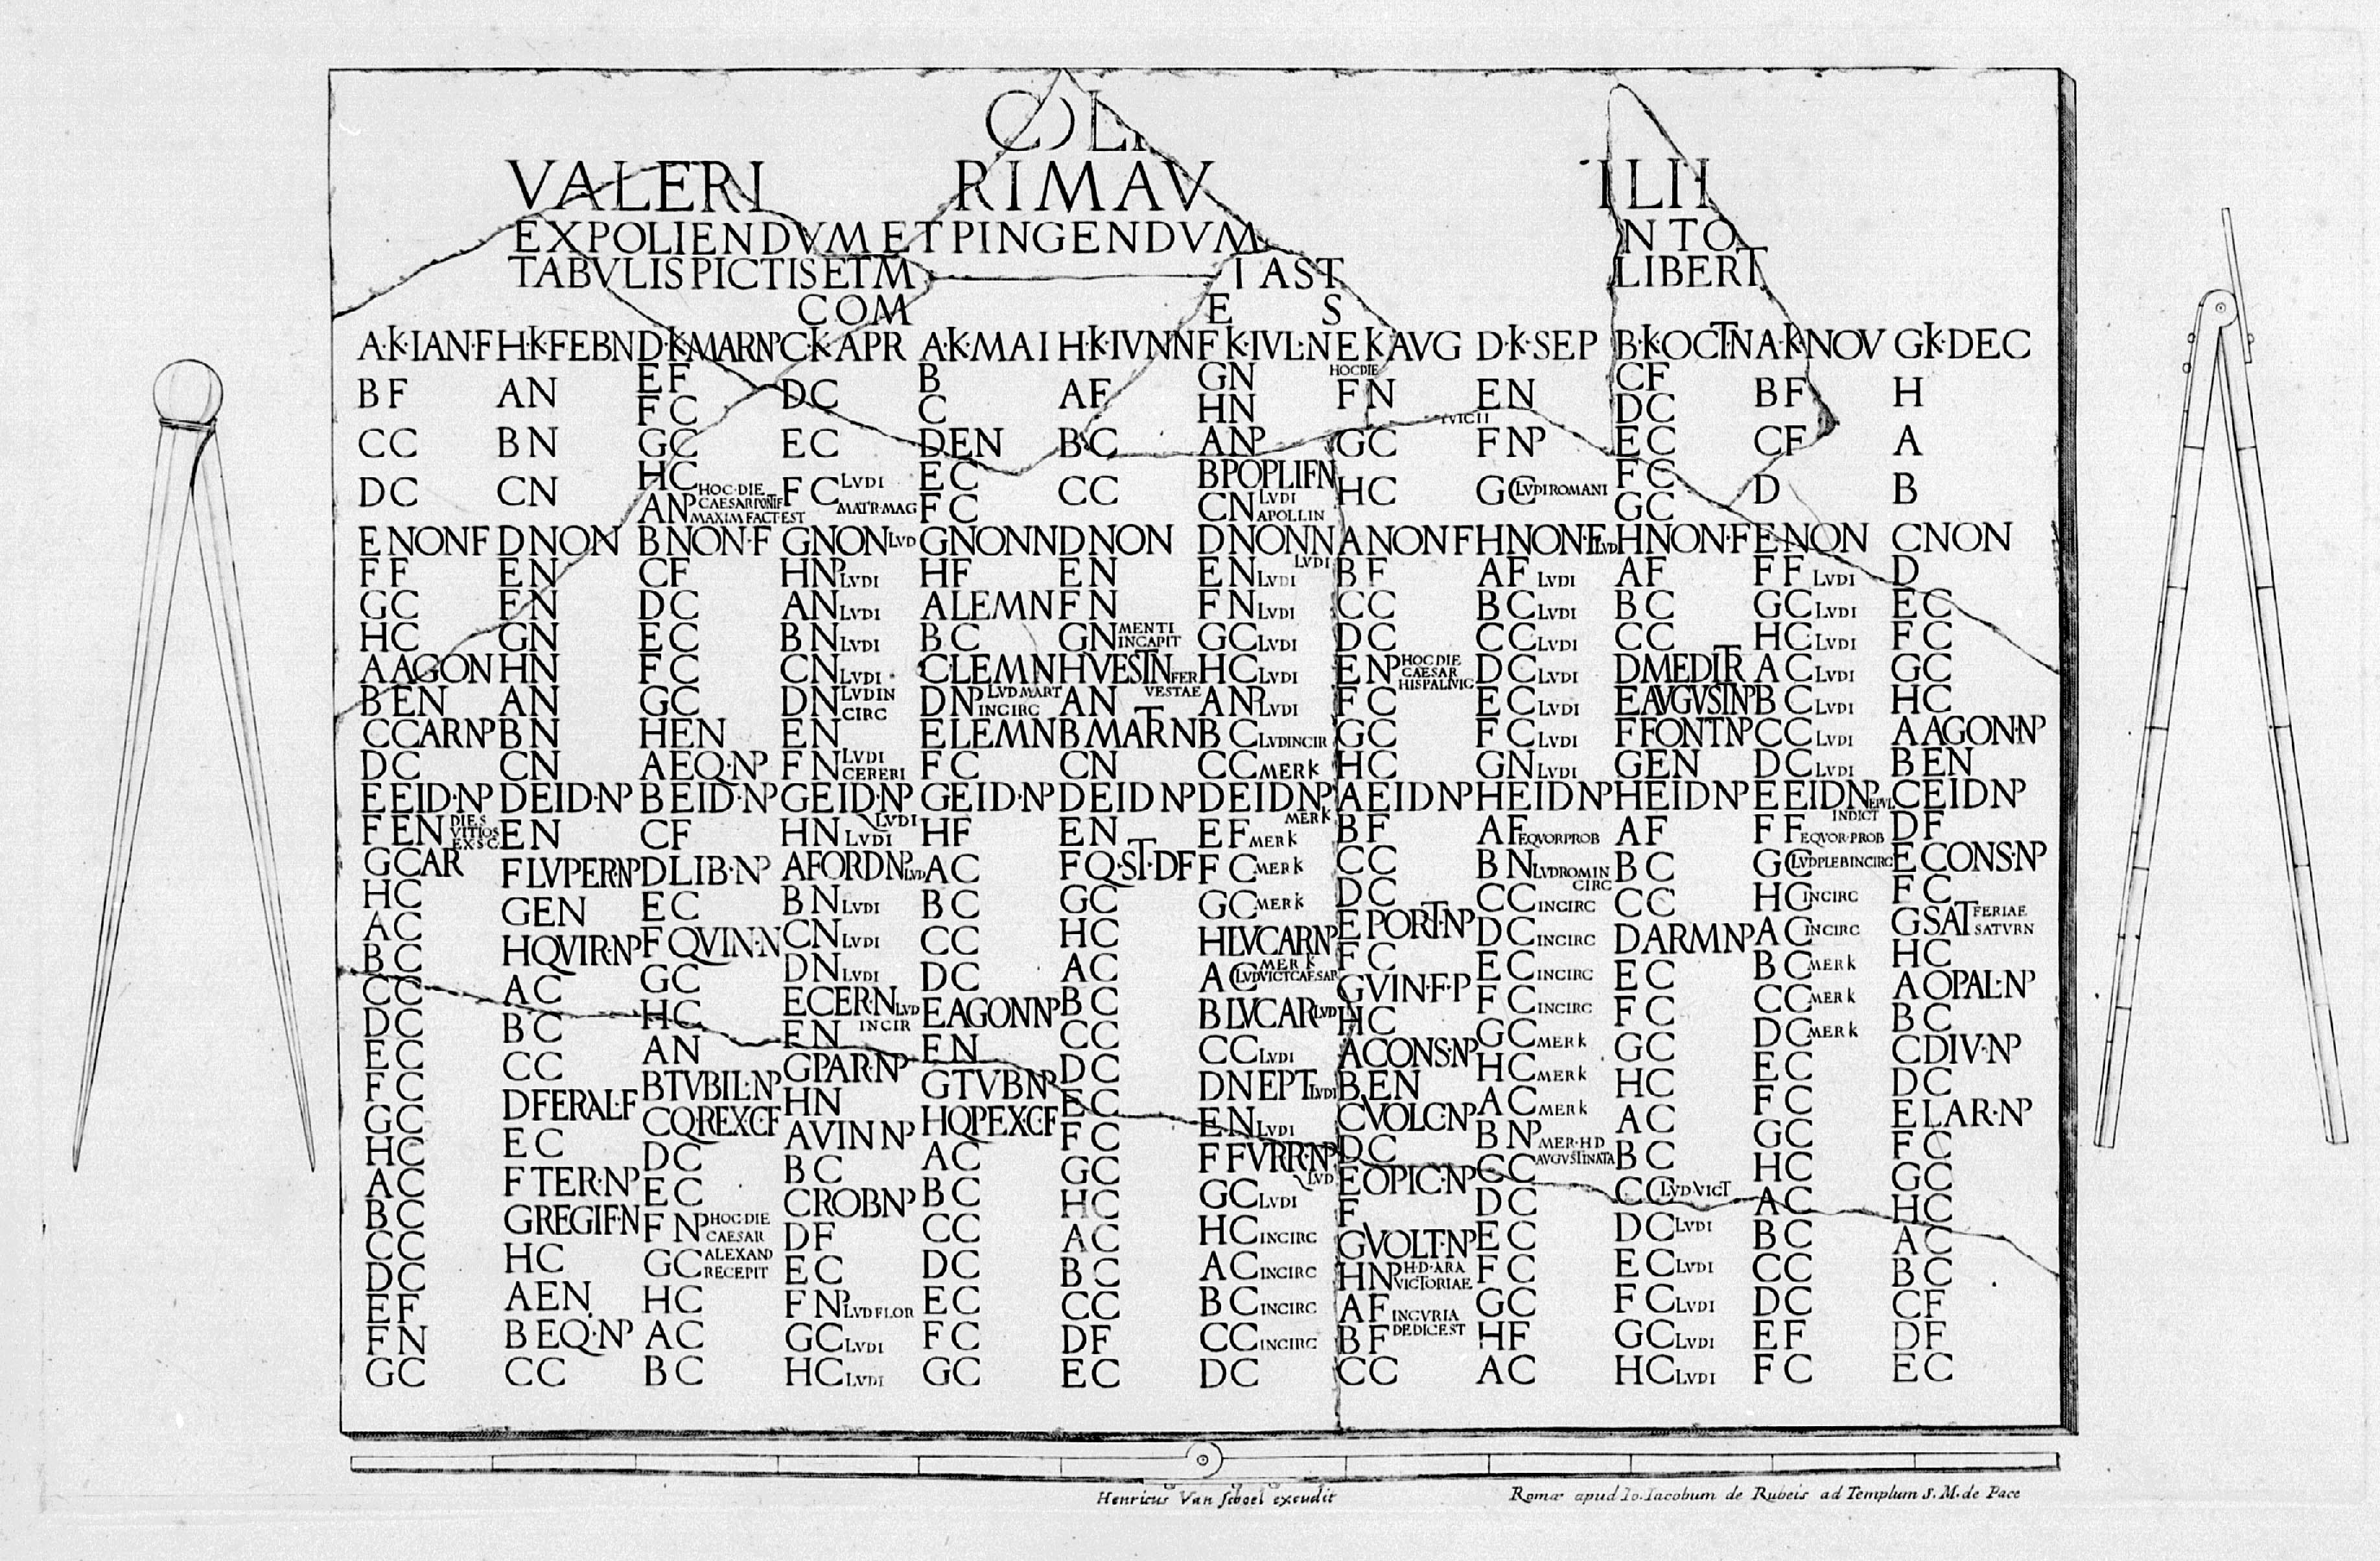 COLI
VALERI RIMAV ILII
EXPOLIENDVM ET PINGENDVM NTO
TABVLIS PICTIS ET M IAST LIBERT
COM E S
A·K·IAN·F
B F
C C
D C
E NON F
F F
G C
H C
A AGON
B EN
C CAR NP
D C
E EID·NP
F EN DIES VITIOS EX S C
G CAR
H C
A C
B C
C C
D C
E C
F C
G C
H C
A C
B C
C C
D C
E F
F N
G C
H·K·FEB N
A N
B N
C N
D NON
E N
F N
G N
H N
A N
B N
C N
D EID·NP
E N
F LVPER·NP
G EN
H QVIR·NP
A C
B C
C C
D FERAL·F
E C
F TER·NP
G REGIF·N
H C
A EN
B EQ·NP
C C
D·K·MAR NP
E F
F C
G C
H C
A NP HOC·DIE CAESAR PONTIF MAXIM FACT·EST
B NON·F
C F
D C
E C
F C
G C
H EN
A EQ·NP
B EID·NP
C F
D LIB·NP
E C
F QVIN·N
G C
H C
A N
B TVBIL·NP
C Q·REX·C·F
D C
E C
F NP HOC·DIE CAESAR
G C ALEXAND RECEPIT
H C
A C
B C
C·K·APR
D C
E C
F C LVDI MATR·MAG
G NON LVD
H NP LVDI
A N LVDI
B N LVDI
C N LVDI
D N LVD IN CIRC
E N
F N LVDI CERERI
G EID·NP LVDI
H N LVDI
A FORD NP LVD
B N LVDI
C N LVDI
D N LVDI
E CER·N LVD IN CIR
F N
G PAR·NP
H N
A VIN NP
B C
C ROB NP
D F
E C
F NP LVD FLOR
G C LVDI
H C LVDI
A·K·MAI
B
C
D EN
E C
F C
G NON N
H F
A LEM N
B C
C LEM N
D NP LVD MART IN CIRC
E LEM N
F C
G EID·NP
H F
A C
B C
C C
D C
E AGON NP
F N
G TVB NP
H Q PEX C F
A C
B C
C C
D C
E C
F C
G C
H·K·IVN N
A F
B C
C C
D NON
E N
F N
G N MENTI IN CAPIT
H VEST N FER VESTAE
A N
B MATR N
C N
D EID NP
E N
F Q·ST·D F
G C
H C
A C
B C
C C
D C
E C
F C
G C
H C
A C
B C
C C
D F
E C
F K·IVL·N
G N
H N
A NP
B POPLIF N
C N LVDI APOLLIN
D NON N LVDI
E N LVDI
F N LVDI
G C LVDI
H C LVDI
A NP LVDI
B C LVD IN CIR
C C MERK
D EID NP MERK
E F MERK
F C MERK
G C MERK
H LVCAR NP MERK
A C LVD VICT CAESAR
B LVCAR LVD
C C LVDI
D NEPT LVDI
E N LVDI
F FVRR·NP LVD
G C LVDI
H C IN CIRC
A C IN CIRC
B C IN CIRC
C C IN CIRC
D C
E K AVG
HOC DIE
F N
G C
H C
A NON F
B F
C C
D C
E NP HOC DIE CAESAR HISPALI VIC
F C
G C
H C
A EID NP
B F
C C
D C
E PORT·NP
F C
G VIN·F·P
H C
A CONS·NP
B EN
C VOLC·NP
D C
E OPIC·NP
F
G VOLT·NP
H NP H·D·ARA VICTORIAE
A F IN CVRIA
B F DEDIC EST
C C
D·K·SEP
E N
F NP
G C LVDI ROMANI
H NON·F LVD
A F LVDI
B C LVDI
C C LVDI
D C LVDI
E C LVDI
F C LVDI
G N LVDI
H EID NP
A F EQVOR PROB
B N LVD ROM IN CIRC
C C IN CIRC
D C IN CIRC
E C IN CIRC
F C IN CIRC
G C MERK
H C MERK
A C MERK
B NP MER·H D
C C AVGVSTI NATA
D C
E C
F C
G C
H F
A C
B·K·OCT N
C F
D C
E C
F C
G C
H NON·F
A F
B C
C C
D MEDITR
E AVGVST NP
F FONT NP
G EN
H EID NP
A F
B C
C C
D ARM NP
E C
F C
G C
H C
A C
B C
C C LVD·VICT
D C LVDI
E C LVDI
F C LVDI
G C LVDI
H C LVDI
A·K·NOV
B F
C F
D
E NON
F F LVDI
G C LVDI
H C LVDI
A C LVDI
B C LVDI
C C LVDI
D C LVDI
E EID NP EPVL INDICT
F F EQVOR·PROB
G C LVD PLEB IN CIRC
H C IN CIRC
A C IN CIRC
B C MERK
C C MERK
D C MERK
E C
F C
G C
H C
A C
B C
C C
D C
E F
F C
G K·DEC
H
A
B
C NON
D
E C
F C
G C
H C
A AGON·NP
B EN
C EID NP
D F
E CONS·NP
F C
G SAT FERIAE SATVRN
H C
A OPAL·NP
B C
C DIV·NP
D C
E LAR·NP
F C
G C
H C
A C
B C
C F
D F
E C
Henricus Van Schoel excudit
Romæ apud Io. Iacobum de Rubeis ad Templum S. M. de Pace